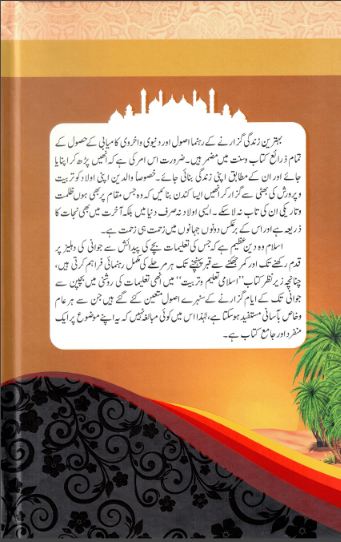 بہترین زندگی گزارنے کے رہنما اصول اور دنیوی و اخروی کامیابی کے حصول کے
تمام ذرائع کتاب و سنت میں مضمر ہیں۔ ضرورت اس امر کی ہے کہ انھیں پڑھ کر اپنایا
جائے اور ان کے مطابق اپنی زندگی بنائی جائے۔ خصوصاً والدین اپنی اولاد کو تربیت
و پرورش کی بھٹی سے گزار کر انھیں ایسا کندن بنائیں کہ وہ جس مقام پر بھی ہوں ظلمت
و تاریکی ان کی تاب نہ لا سکے۔ ایسی اولاد نہ صرف دنیا میں بلکہ آخرت میں بھی نجات کا
ذریعہ ہے اور اس کے برعکس دونوں جہانوں میں زحمت ہی زحمت ہے۔
اسلام وہ دین عظیم ہے کہ جس کی تعلیمات بچے کی پیدائش سے جوانی کی دہلیز پر
قدم رکھنے تک اور کمر جھکنے سے قبر پہنچنے تک ہر مرحلے کی مکمل رہنمائی فراہم کرتی ہیں،
چنانچہ زیر نظر کتاب ’’اسلامی تعلیم و تربیت‘‘ میں انھی تعلیمات کی روشنی میں بچپن سے
جوانی تک کے ایام گزارنے کے سنہرے اصول متعین کئے گئے ہیں جن سے ہر عام
و خاص بآسانی مستفید ہو سکتا ہے، لہٰذا اس میں کوئی مبالغہ نہیں کہ یہ اپنے موضوع پر ایک
منفرد اور جامع کتاب ہے۔